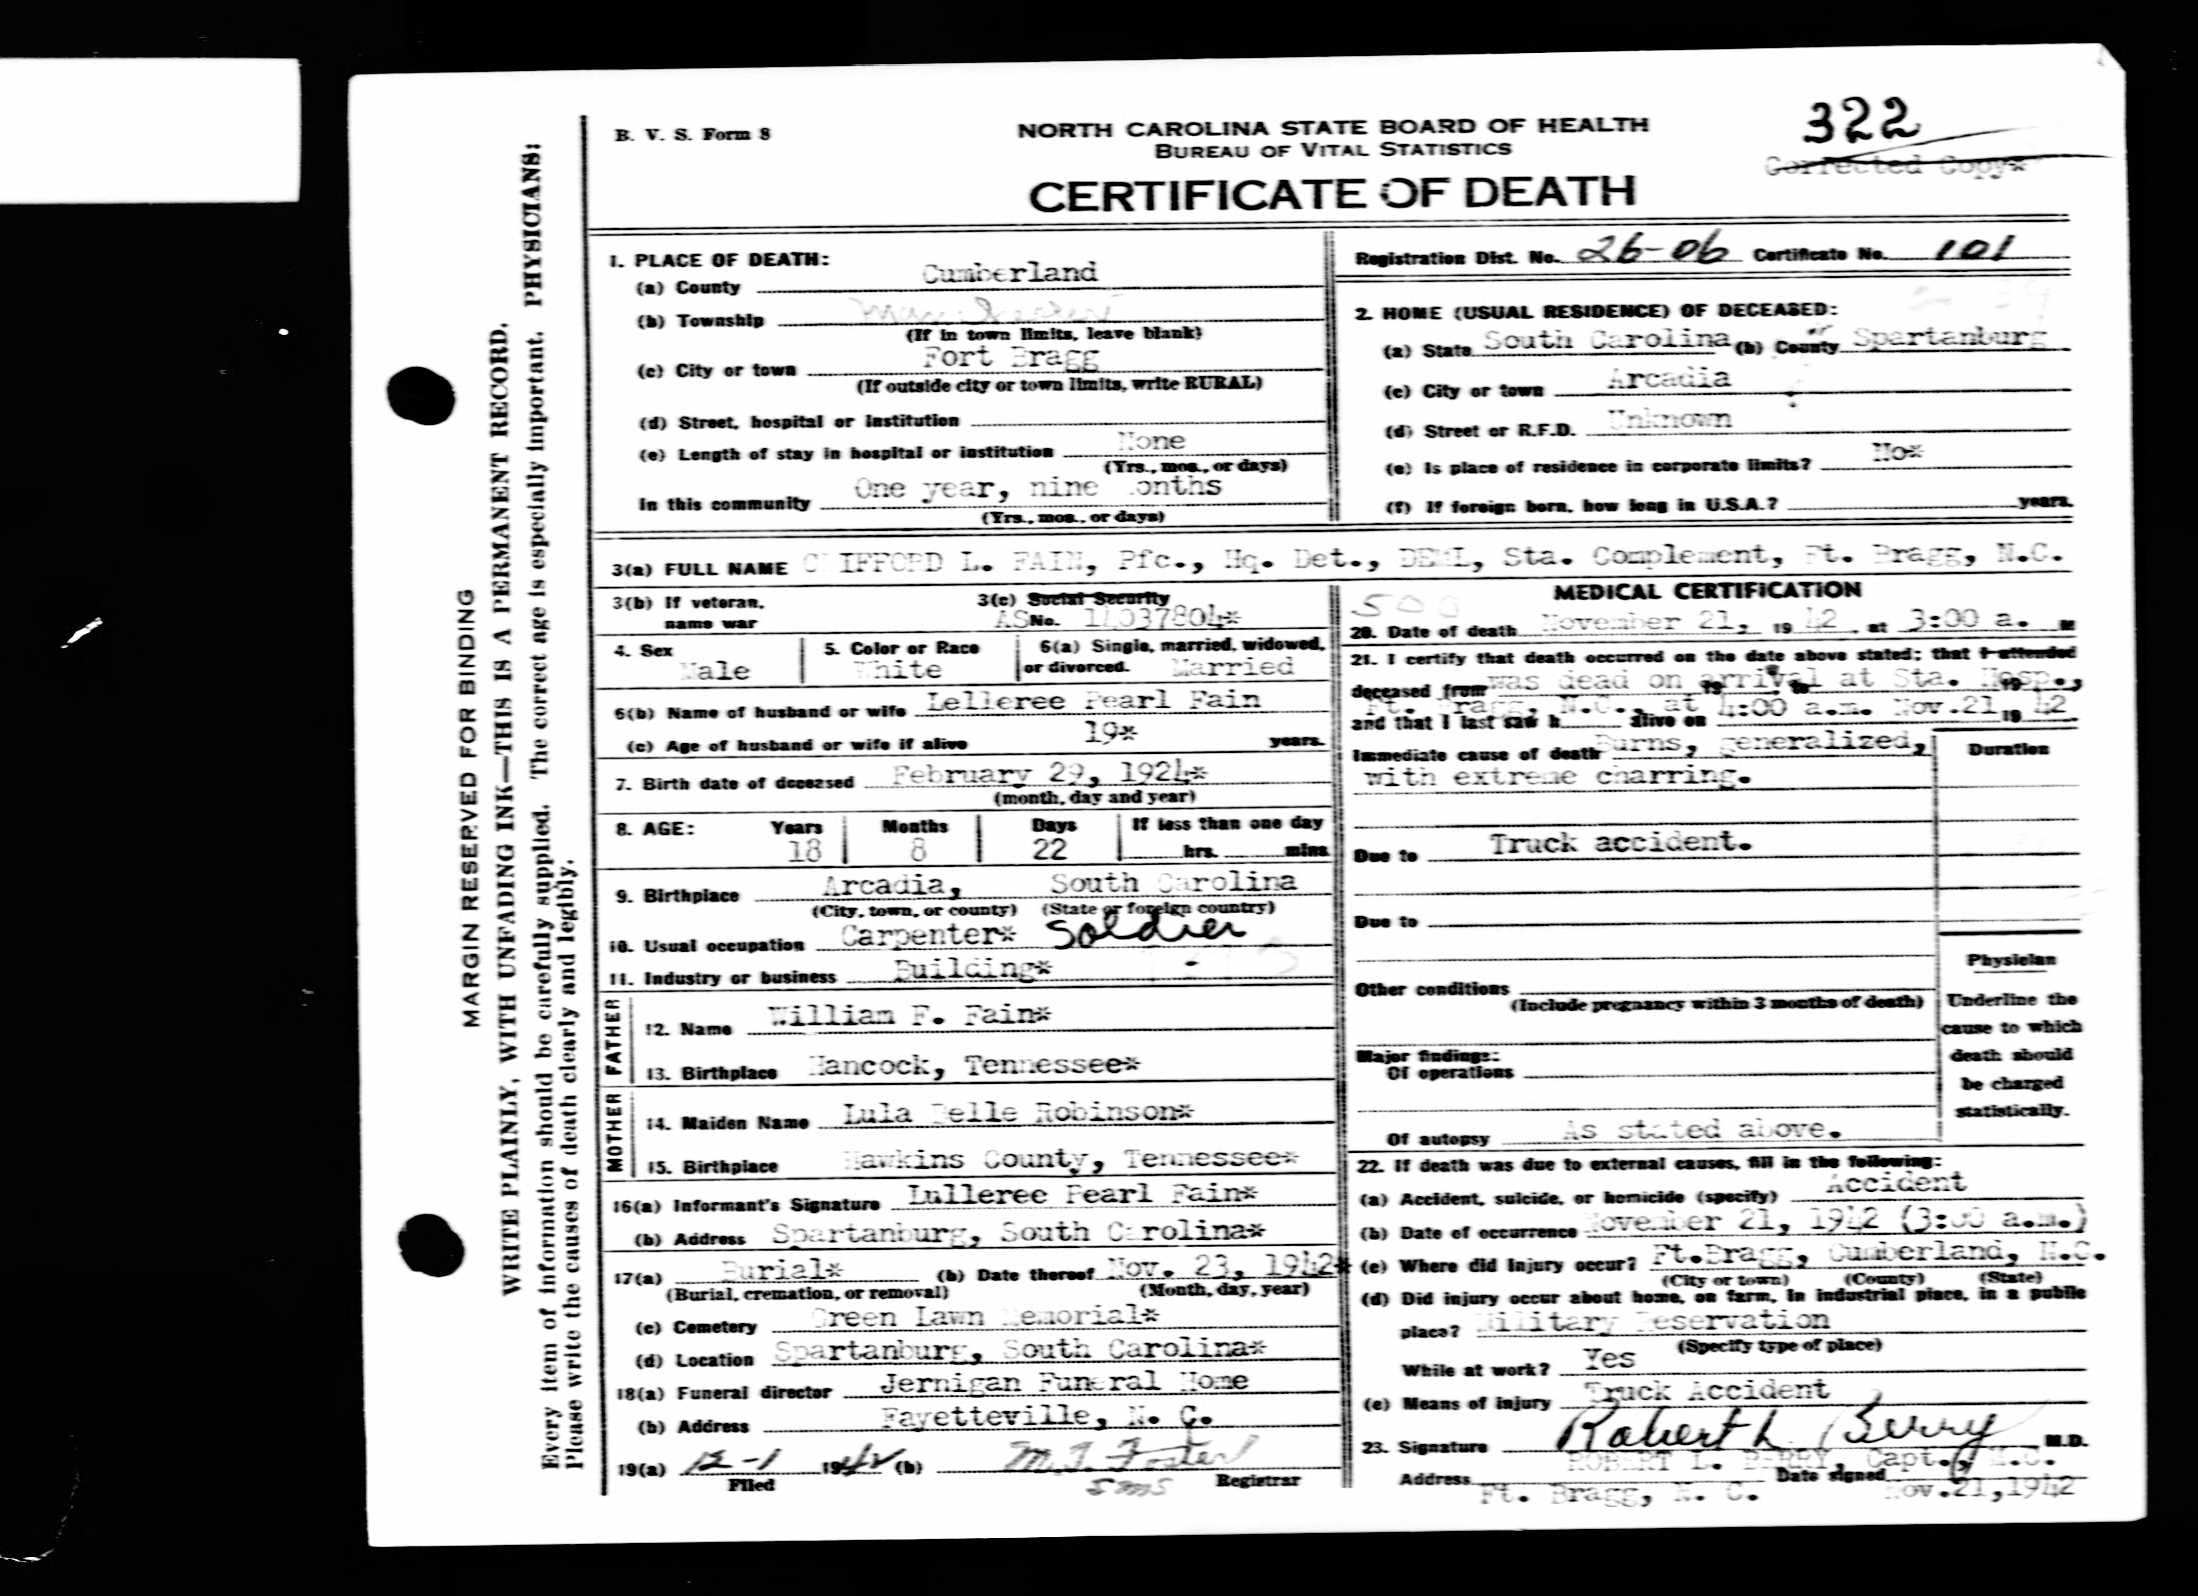 322
B. V. S. Form 8
NORTH CAROLINA STATE BOARD OF HEALTH
BUREAU OF VITAL STATISTICS
Corrected Copy*
CERTIFICATE OF DEATH
MARGIN RESERVED FOR BINDING
WRITE PLAINLY, WITH UNFADING INK—THIS IS A PERMANENT RECORD.
Every item of information should be carefully supplied. The correct age is especially important. PHYSICIANS:
Please write the causes of death clearly and legibly.
1. PLACE OF DEATH:
(a) County Cumberland
(b) Township
(If in town limits, leave blank)
(c) City or town Fort Bragg
(If outside city or town limits, write RURAL)
(d) Street, hospital or institution
(e) Length of stay in hospital or institution None
(Yrs., mos., or days)
In this community One year, nine months
(Yrs., mos., or days)
Registration Dist. No. 26-06 Certificate No. 101
2. HOME (USUAL RESIDENCE) OF DECEASED:
(a) State South Carolina (b) County Spartanburg
(c) City or town Arcadia
(d) Street or R.F.D. Unknown
(e) Is place of residence in corporate limits? No*
(f) If foreign born, how long in U.S.A.? years.
3(a) FULL NAME CLIFFORD L. FAIN, Pfc., Hq. Det., DEML, Sta. Complement, Ft. Bragg, N.C.
3(b) If veteran, name war
3(c) Social Security
ASNo. 14037804*
4. Sex Male
5. Color or Race White
6(a) Single, married, widowed, or divorced. Married
6(b) Name of husband or wife Lelleree Pearl Fain
(c) Age of husband or wife if alive 19* years.
7. Birth date of deceased February 29, 1924*
(month, day and year)
8. AGE: Years Months Days If less than one day
18 8 22 hrs. mins
9. Birthplace Arcadia, South Carolina
(City, town, or county) (State or foreign country)
10. Usual occupation Carpenter* Soldier
11. Industry or business Building*
FATHER
12. Name William F. Fain*
13. Birthplace Hancock, Tennessee*
MOTHER
14. Maiden Name Lula Belle Robinson*
15. Birthplace Hawkins County, Tennessee*
16(a) Informant's Signature Lulleree Pearl Fain*
(b) Address Spartanburg, South Carolina*
17(a) Burial* (b) Date thereof Nov. 23, 1942*
(Burial, cremation, or removal) (Month, day, year)
(c) Cemetery Green Lawn Memorial*
(d) Location Spartanburg, South Carolina*
18(a) Funeral director Jernigan Funeral Home
(b) Address Fayetteville, N. C.
19(a) 12-1 1942 (b) M. J. Foster
Filed Registrar
MEDICAL CERTIFICATION
20. Date of death November 21, 19 42 at 3:00 a. M
21. I certify that death occurred on the date above stated; that I attended
deceased from was dead on arrival at Sta. Hosp.,
Ft. Bragg, N.C., at 4:00 a.m. Nov.21 19 42
and that I last saw h alive on
Immediate cause of death Burns, generalized,
with extreme charring.
Duration
Due to Truck accident.
Due to
Other conditions
(Include pregnancy within 3 months of death)
Major findings:
Of operations
Of autopsy As stated above.
Physician
Underline the
cause to which
death should
be charged
statistically.
22. If death was due to external causes, fill in the following:
(a) Accident, suicide, or homicide (specify) Accident
(b) Date of occurrence November 21, 1942 (3:00 a.m.)
(c) Where did injury occur? Ft.Bragg, Cumberland, N.C.
(City or town) (County) (State)
(d) Did injury occur about home, on farm, in industrial place, in a public
place? Military Reservation
(Specify type of place)
While at work? Yes
(e) Means of injury Truck Accident
23. Signature Robert L Berry M.D.
ROBERT L. BERRY, Capt., M.C.
Address Ft. Bragg, N. C. Date signed Nov.21,1942